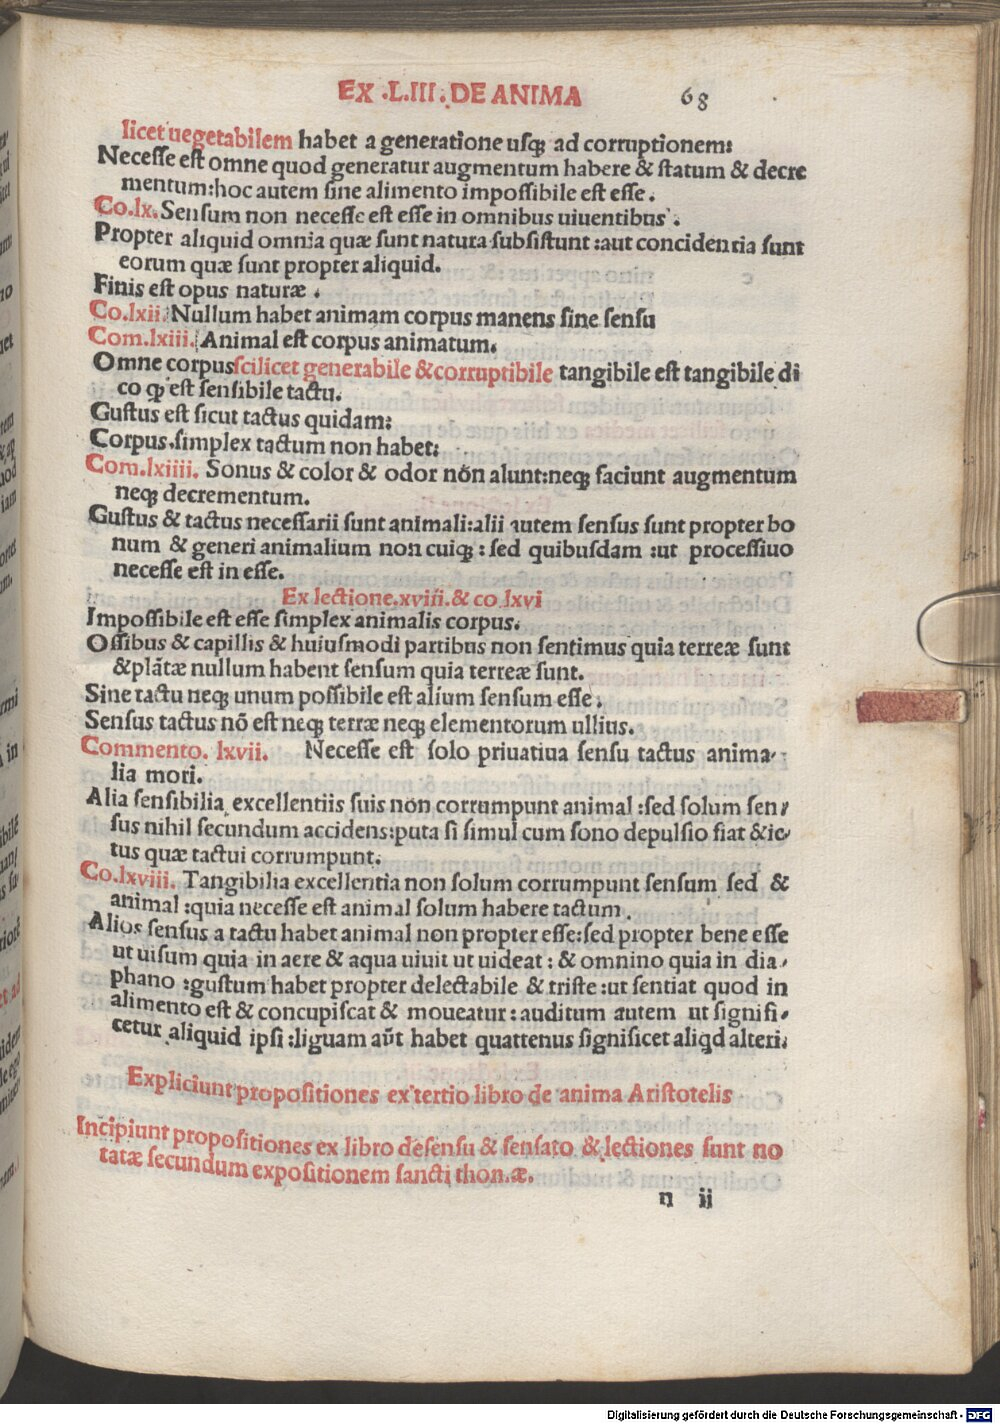 EX .L.III. DE ANIMA 68
licet uegetabilem habet a generatione usqꝫ ad corruptionem:
Necesse est omne quod generatur augmentum habere & statum & decre
mentum:hoc autem sine alimento impossibile est esse.
Co.lx. Sensum non necesse est esse in omnibus uiuentibus.
Propter aliquid omnia quæ sunt natura subsistunt :aut concidentia sunt
eorum quæ sunt propter aliquid.
Finis est opus naturæ .
Co.lxii. Nullum habet animam corpus manens sine sensu
Com.lxiii. Animal est corpus animatum.
Omne corpus scilicet generabile & corruptibile tangibile est tangibile di
co ꝙ est sensibile tactu.
Gustus est sicut tactus quidam:
Corpus simplex tactum non habet:
Com.lxiiii. Sonus & color & odor nōn alunt:neqꝫ faciunt augmentum
neqꝫ decrementum.
Gustus & tactus necessarii sunt animali:alii autem sensus sunt propter bo
num & generi animalium non cuiqꝫ : sed quibusdam :ut processiuo
necesse est in esse.
Ex lectione.xviii.& co lxvi
Impossibile est esse simplex animalis corpus.
Ossibus & capillis & huiusmodi partibus non sentimus quia terreæ sunt
& plātæ nullum habent sensum quia terreæ sunt.
Sine tactu neqꝫ unum possibile est alium sensum esse.
Sensus tactus nō est neqꝫ terræ neqꝫ elementorum ullius.
Commento. lxvii. Necesse est solo priuatiua sensu tactus anima-
lia mori.
Alia sensibilia excellentiis suis non corrumpunt animal :sed solum sen/
sus nihil secundum accidens:puta si simul cum sono depulsio fiat & ic/
tus quæ tactui corrumpunt.
Co.lxviii. Tangibilia excellentia non solum corrumpunt sensum sed &
animal :quia necesse est animal solum habere tactum.
Alios sensus a tactu habet animal non propter esse:sed propter bene esse
ut uisum quia in aere & aqua uiuit ut uideat : & omnino quia in dia/
phano :gustum habet propter delectabile & triste :ut sentiat quod in
alimento est & concupiscat & moueatur : auditum autem ut signifi/
cetur aliquid ipsi :liguam aūt habet quattenus significet aliqd alteri.
Expliciunt propositiones ex tertio libro de anima Aristotelis
Incipiunt propositiones ex libro de sensu & sensato & lectiones sunt no
tatæ secundum expositionem sancti thon.æ.
n ii
Digitalisierung gefördert durch die Deutsche Forschungsgemeinschaft - DFG